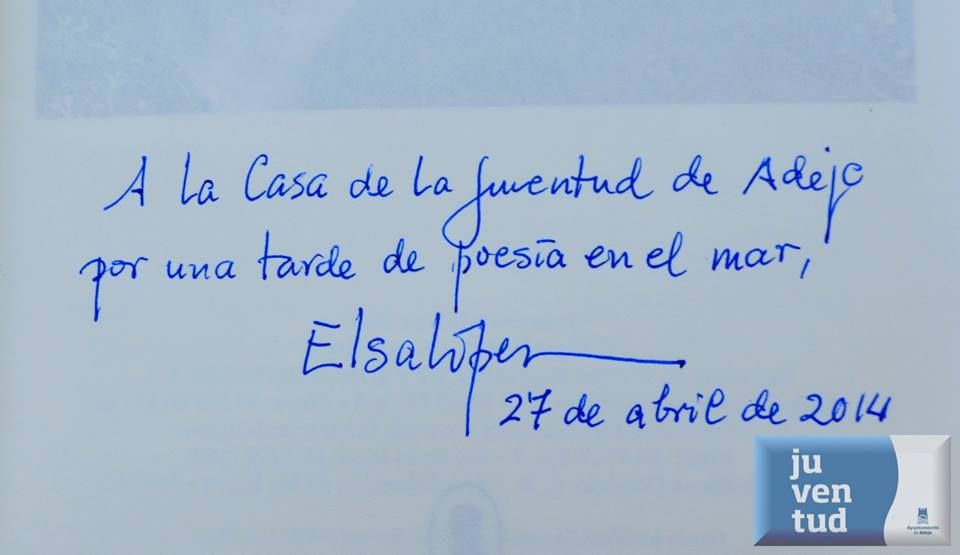 A la Casa de la Juventud de Adeje
por una tarde de poesía en el mar,
Elsa López
27 de abril de 2014
ju
ven
tud
Ayuntamiento
de Adeje